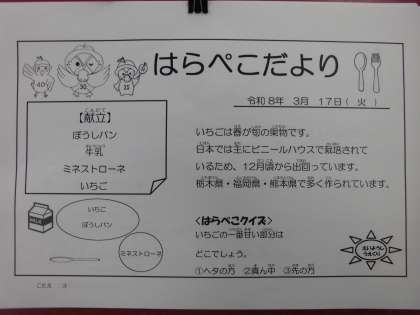 はらぺこだより
令和8年 3月 17日( 火 )
【献立】
ぼうしパン
牛乳
ミネストローネ
いちご
いちごは春が旬の果物です。
日本では主にビニールハウスで栽培されて
いるため、12月頃から出回っています。
栃木県・福岡県・熊本県で多く作られています。
いちご
ぼうしパン
ミネストローネ
MILK
<はらぺこクイズ>
いちごの一番甘い部分は
どこでしょう。
①ヘタの方 ②真ん中 ③先の方
こたえ ③